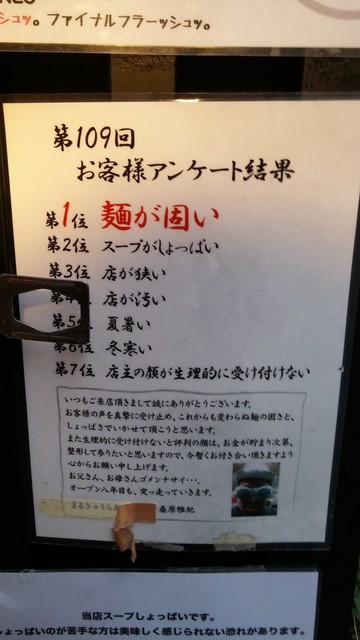 シュッ。ファイナルフラーッシュッ。
第109回
お客様アンケート結果
第1位 麺が固い
第2位 スープがしょっぱい
第3位 店が狭い
第4位 店が汚い
第5位 夏暑い
第6位 冬寒い
第7位 店主の顔が生理的に受け付けない
いつもご来店頂きまして誠にありがとうございます。
お客様の声を真摯に受け止め、これからも変わらぬ麺の固さと、
しょっぱさでいかせて頂こうと思います。
また生理的に受け付けないと評判の顔は、お金が貯まり次第、
整形して参りたいと思いますので、今暫くお付き合い頂きますよう
心からお願い申し上げます。
お父さん、お母さんゴメンナサイ・・・。
オープン八年目も、突っ走っていきます。
まるきゅうら 桑原雅紀
当店スープしょっぱいです。
しょっぱいのが苦手な方は美味しく感じられない恐れがあります。